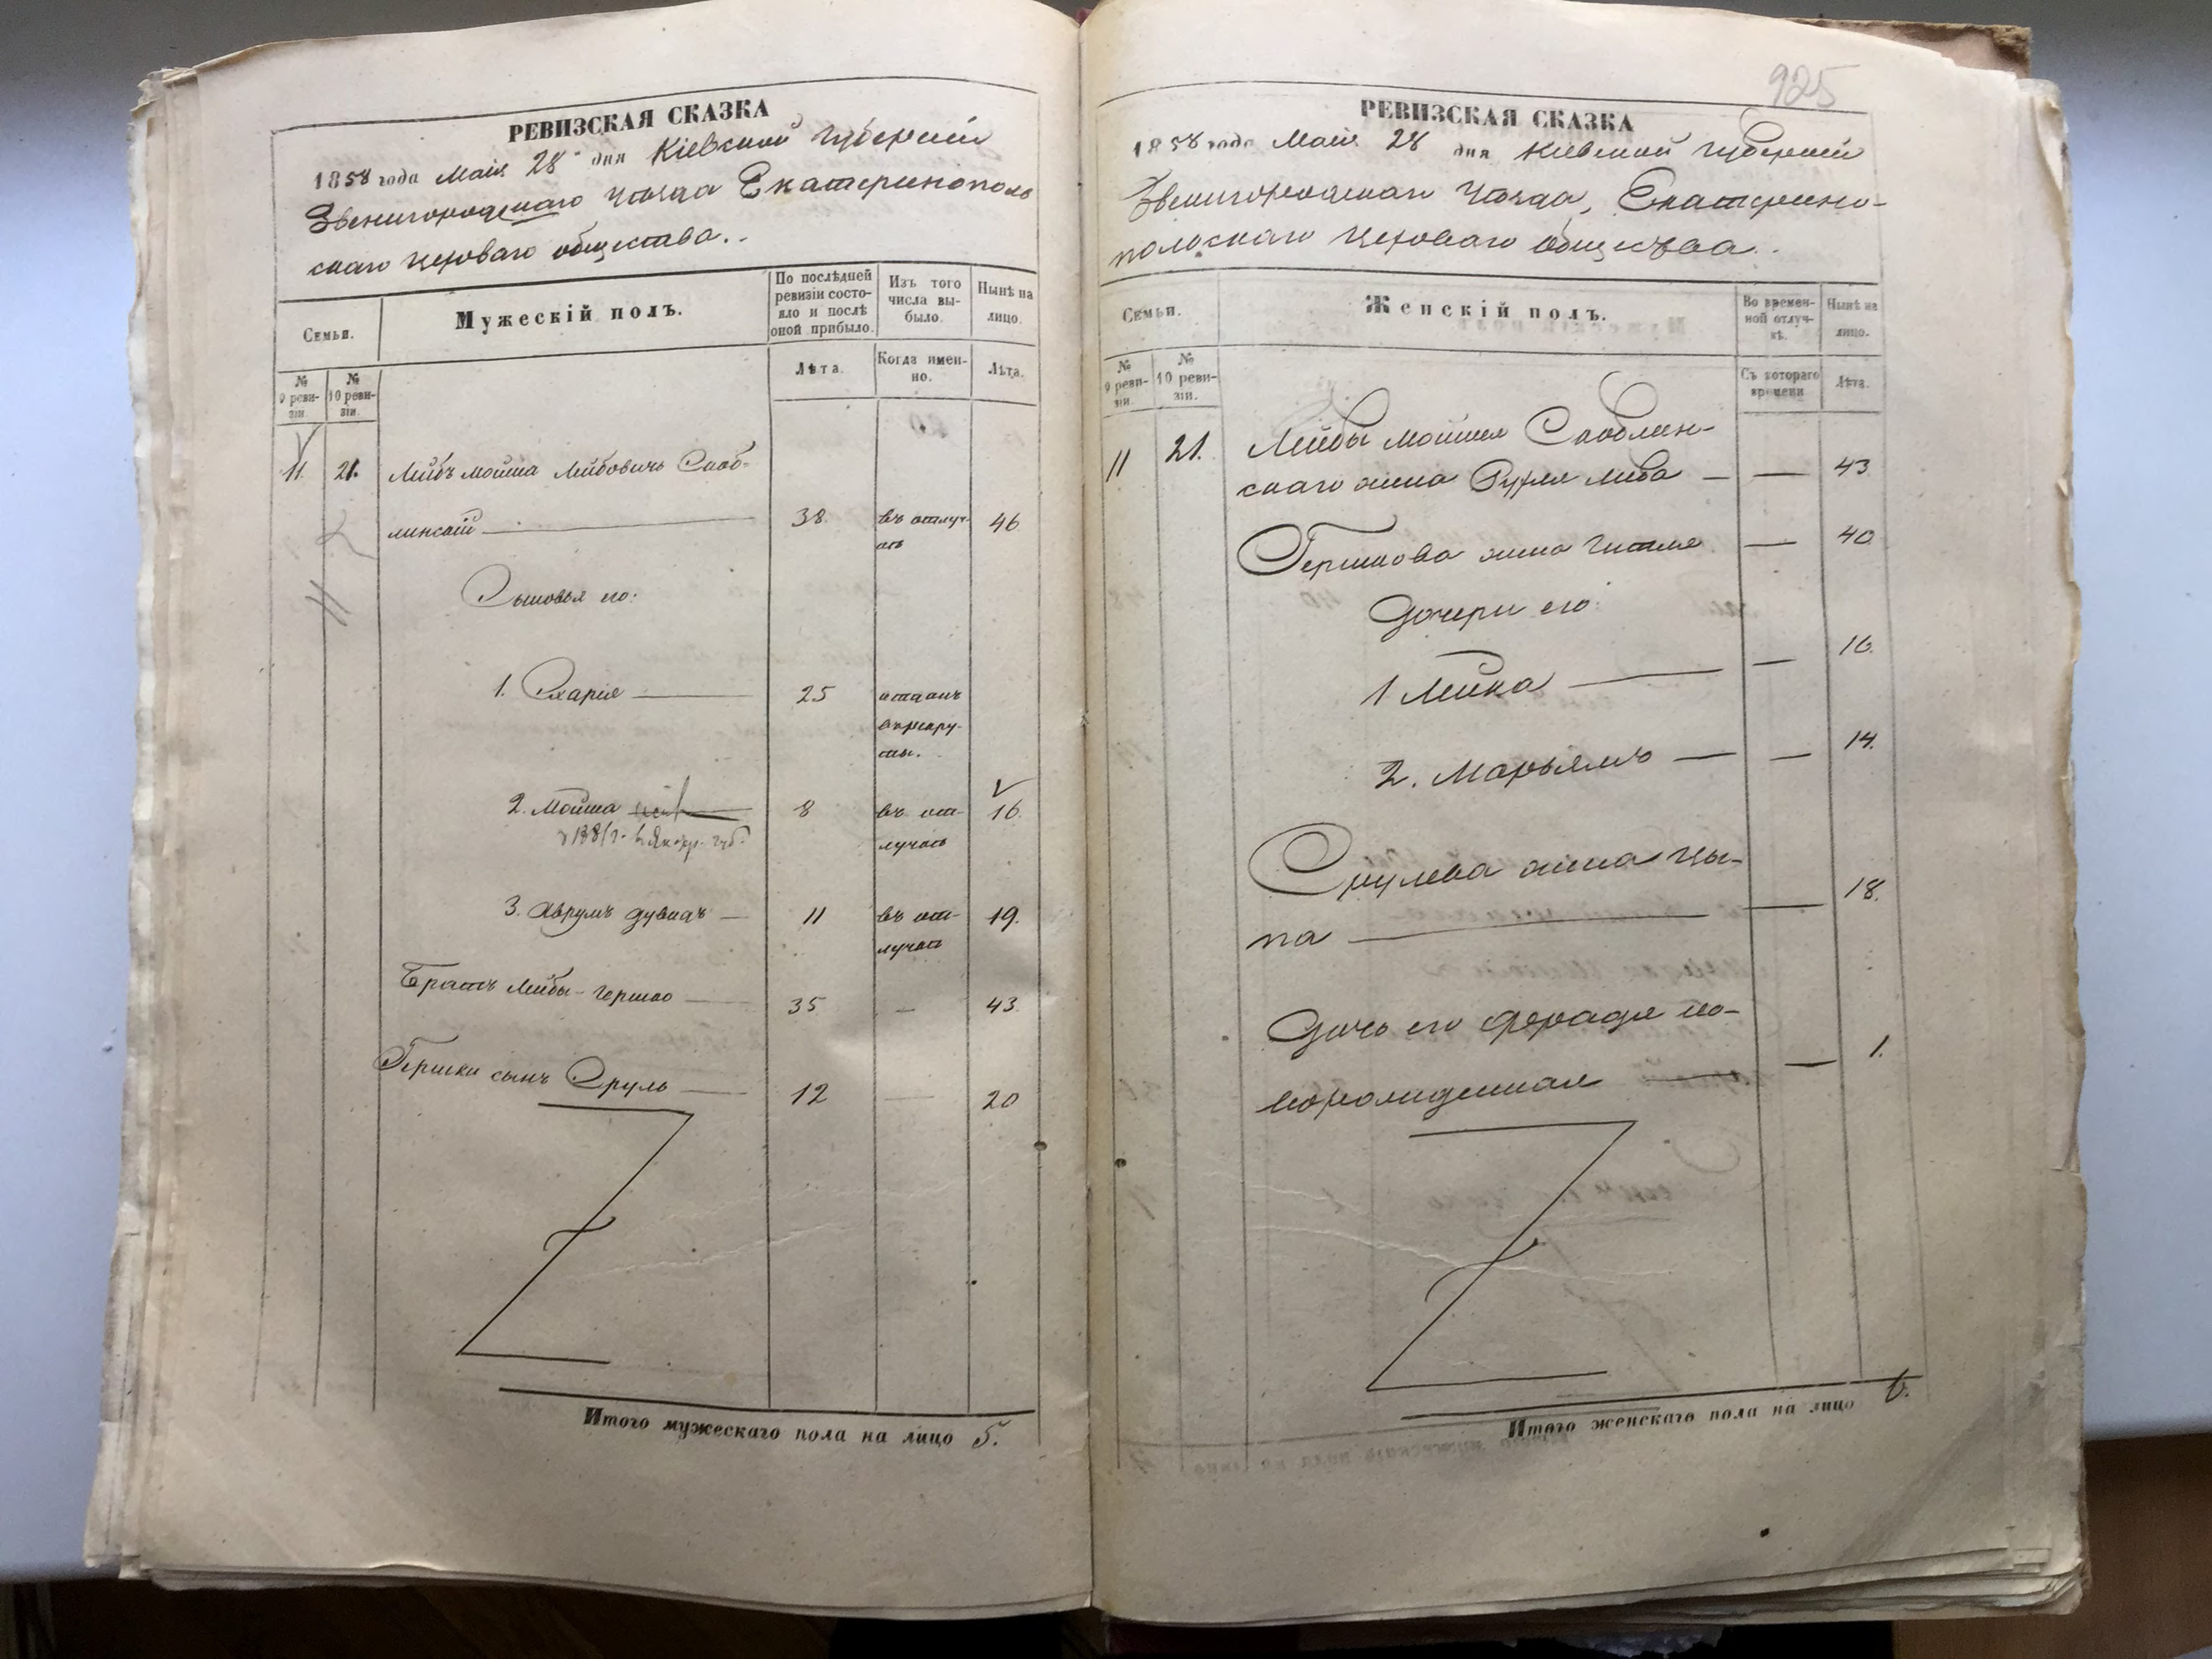 РЕВИЗСКАЯ СКАЗКА
1858 года Мая 28 дня Кіевской Губерніи
Звенигородскаго Уѣзда Екатеринополь
скаго цеховаго общества.
Семьи.
Мужескій полъ.
По послѣдней ревизіи состояло и послѣ оной прибыло.
Изъ того числа выбыло.
Нынѣ на лицо.
№ 9 ревизіи.
№ 10 ревизіи.
Лѣта.
Когда именно.
Лѣта.
11. 21. Лейбъ Мошка Лейбовичъ Скоб-
линскій 38. въ отлуч- 46.
кѣ
Сыновья его:
1. Схарія 25 отданъ
въ рекру-
ты.
2. Мошка 8 въ от- 16.
лучкѣ
3. Аврумъ Дувидъ 11 въ от- 19.
лучкѣ
Братъ Лейбы - Гершко 35 — 43.
Гершки сынъ Сруль 12 — 20
Итого мужескаго пола на лицо 5.
925
РЕВИЗСКАЯ СКАЗКА
1858 года Мая 28 дня Кіевской Губерніи
Звенигородскаго Уѣзда, Екатерино-
польскаго цеховаго общества.
Семьи.
Женскій полъ.
Во временной отлучкѣ.
Нынѣ на лицо.
№ 9 ревизіи.
№ 10 ревизіи.
Съ котораго времени
Лѣта.
11 21. Лейбы Мошки Скоблин-
скаго жена Рухля Либа — 43
Гершкова жена Гитля — 40
Дочери его:
1 Лейка — 16.
2. Марьямъ — 14.
Срулева жена Цы-
па — 18.
Дочь его Фрадя но-
ворожденная — 1.
Итого женскаго пола на лицо 6.